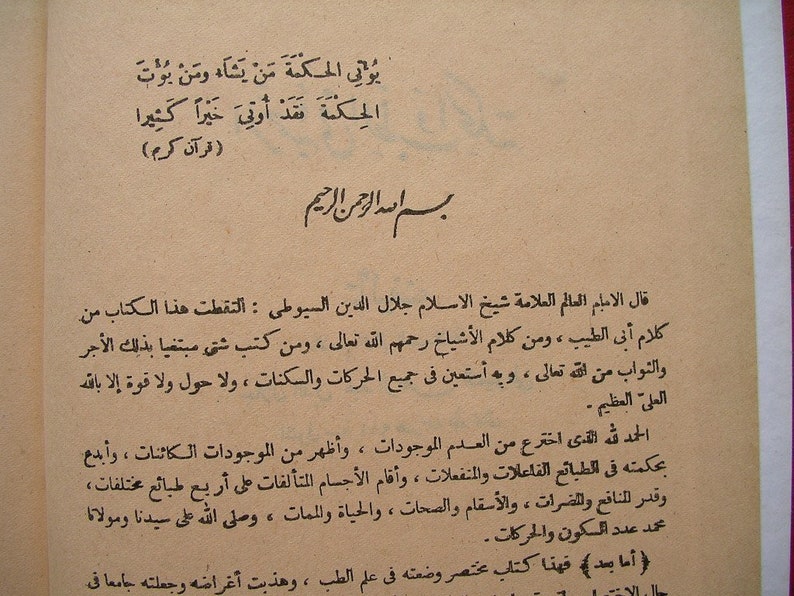 يُؤْتِي الحِكْمَةَ مَنْ يَشَاء وَمَنْ يُؤْتَ
الحِكْمَةَ فَقَدْ أُوتِيَ خَيْراً كَثِيرا
(قرآن كريم)
بسم الله الرحمن الرحيم
قال الامام العالم العلامة شيخ الاسلام جلال الدين السيوطى : التقطت هذا الكتاب من
كلام أبى الطيب ، ومن كلام الأشياخ رحمهم الله تعالى ، ومن كتب شتى مبتغيا بذلك الأجر
والثواب من الله تعالى ، وبه أستعين فى جميع الحركات والسكنات ، ولا حول ولا قوة إلا بالله
العلىّ العظيم .
الحمد لله الذى اخترع من العدم الموجودات ، وأظهر من الموجودات الكائنات ، وأبدع
بحكمته فى الطبائع الفاعلات والمنفعلات ، وأقام الأجسام المتألفات على أربع طبائع مختلفات ،
وقدر المنافع والمضرات ، والأسقام والصحات ، والحياة والممات ، وصلى الله على سيدنا ومولانا
محمد عدد السكون والحركات .
﴿ أما بعد ﴾ فهذا كتاب مختصر وضعته فى علم الطب ، وهذبت أغراضه وجعلته جامعا فى